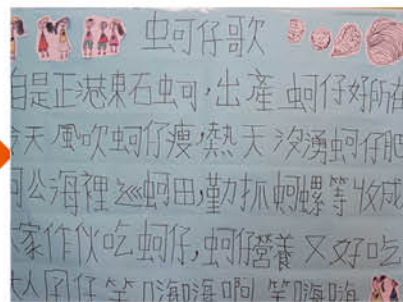 蚵仔歌
自是正港東石蚵,出產 蚵仔好所在
天風吹蚵仔瘦,熱天沒湧蚵仔肥
阿公海裡巡蚵田,勤抓蚵螺等收成
家作伙吃蚵仔,蚵仔營養又好吃
大人囝仔笑嗨嗨啊 笑嗨嗨